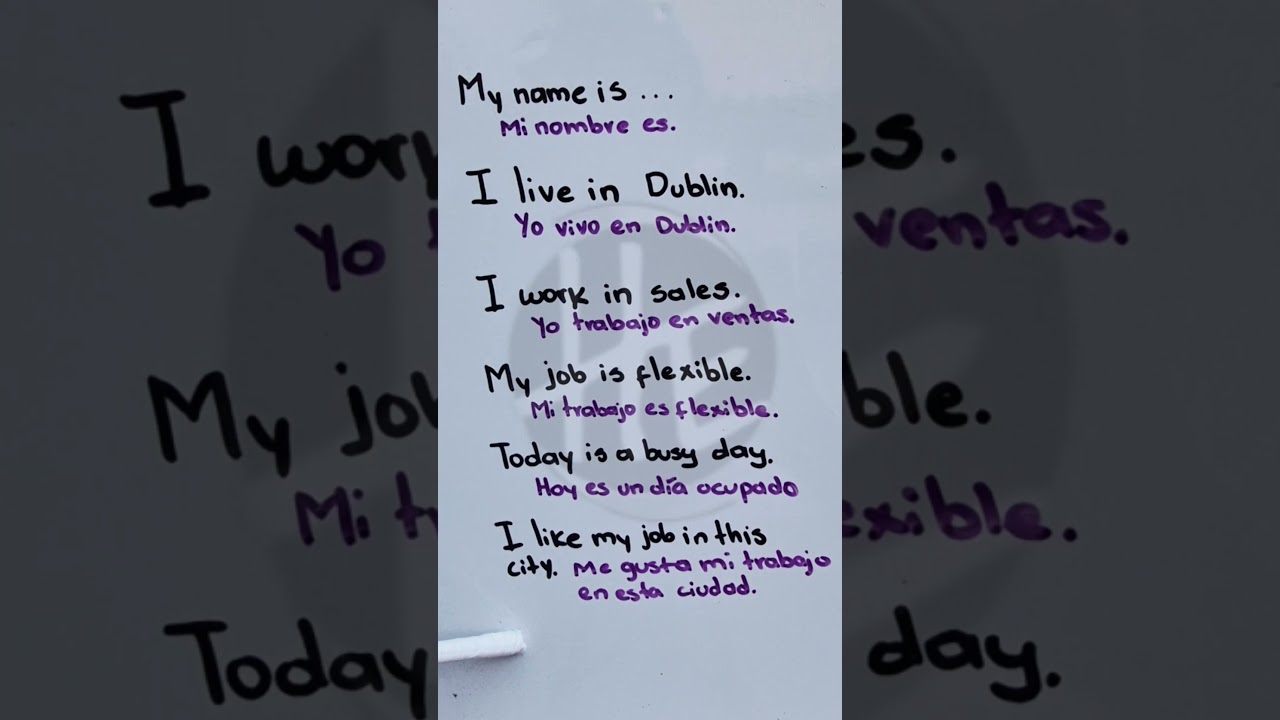 My name is ...
Mi nombre es.
I live in Dublin.
Yo vivo en Dublin.
I work in sales.
Yo trabajo en ventas.
My job is flexible.
Mi trabajo es flexible.
Today is a busy day.
Hoy es un día ocupado
I like my job in this
city. Me gusta mi trabajo
en esta ciudad.